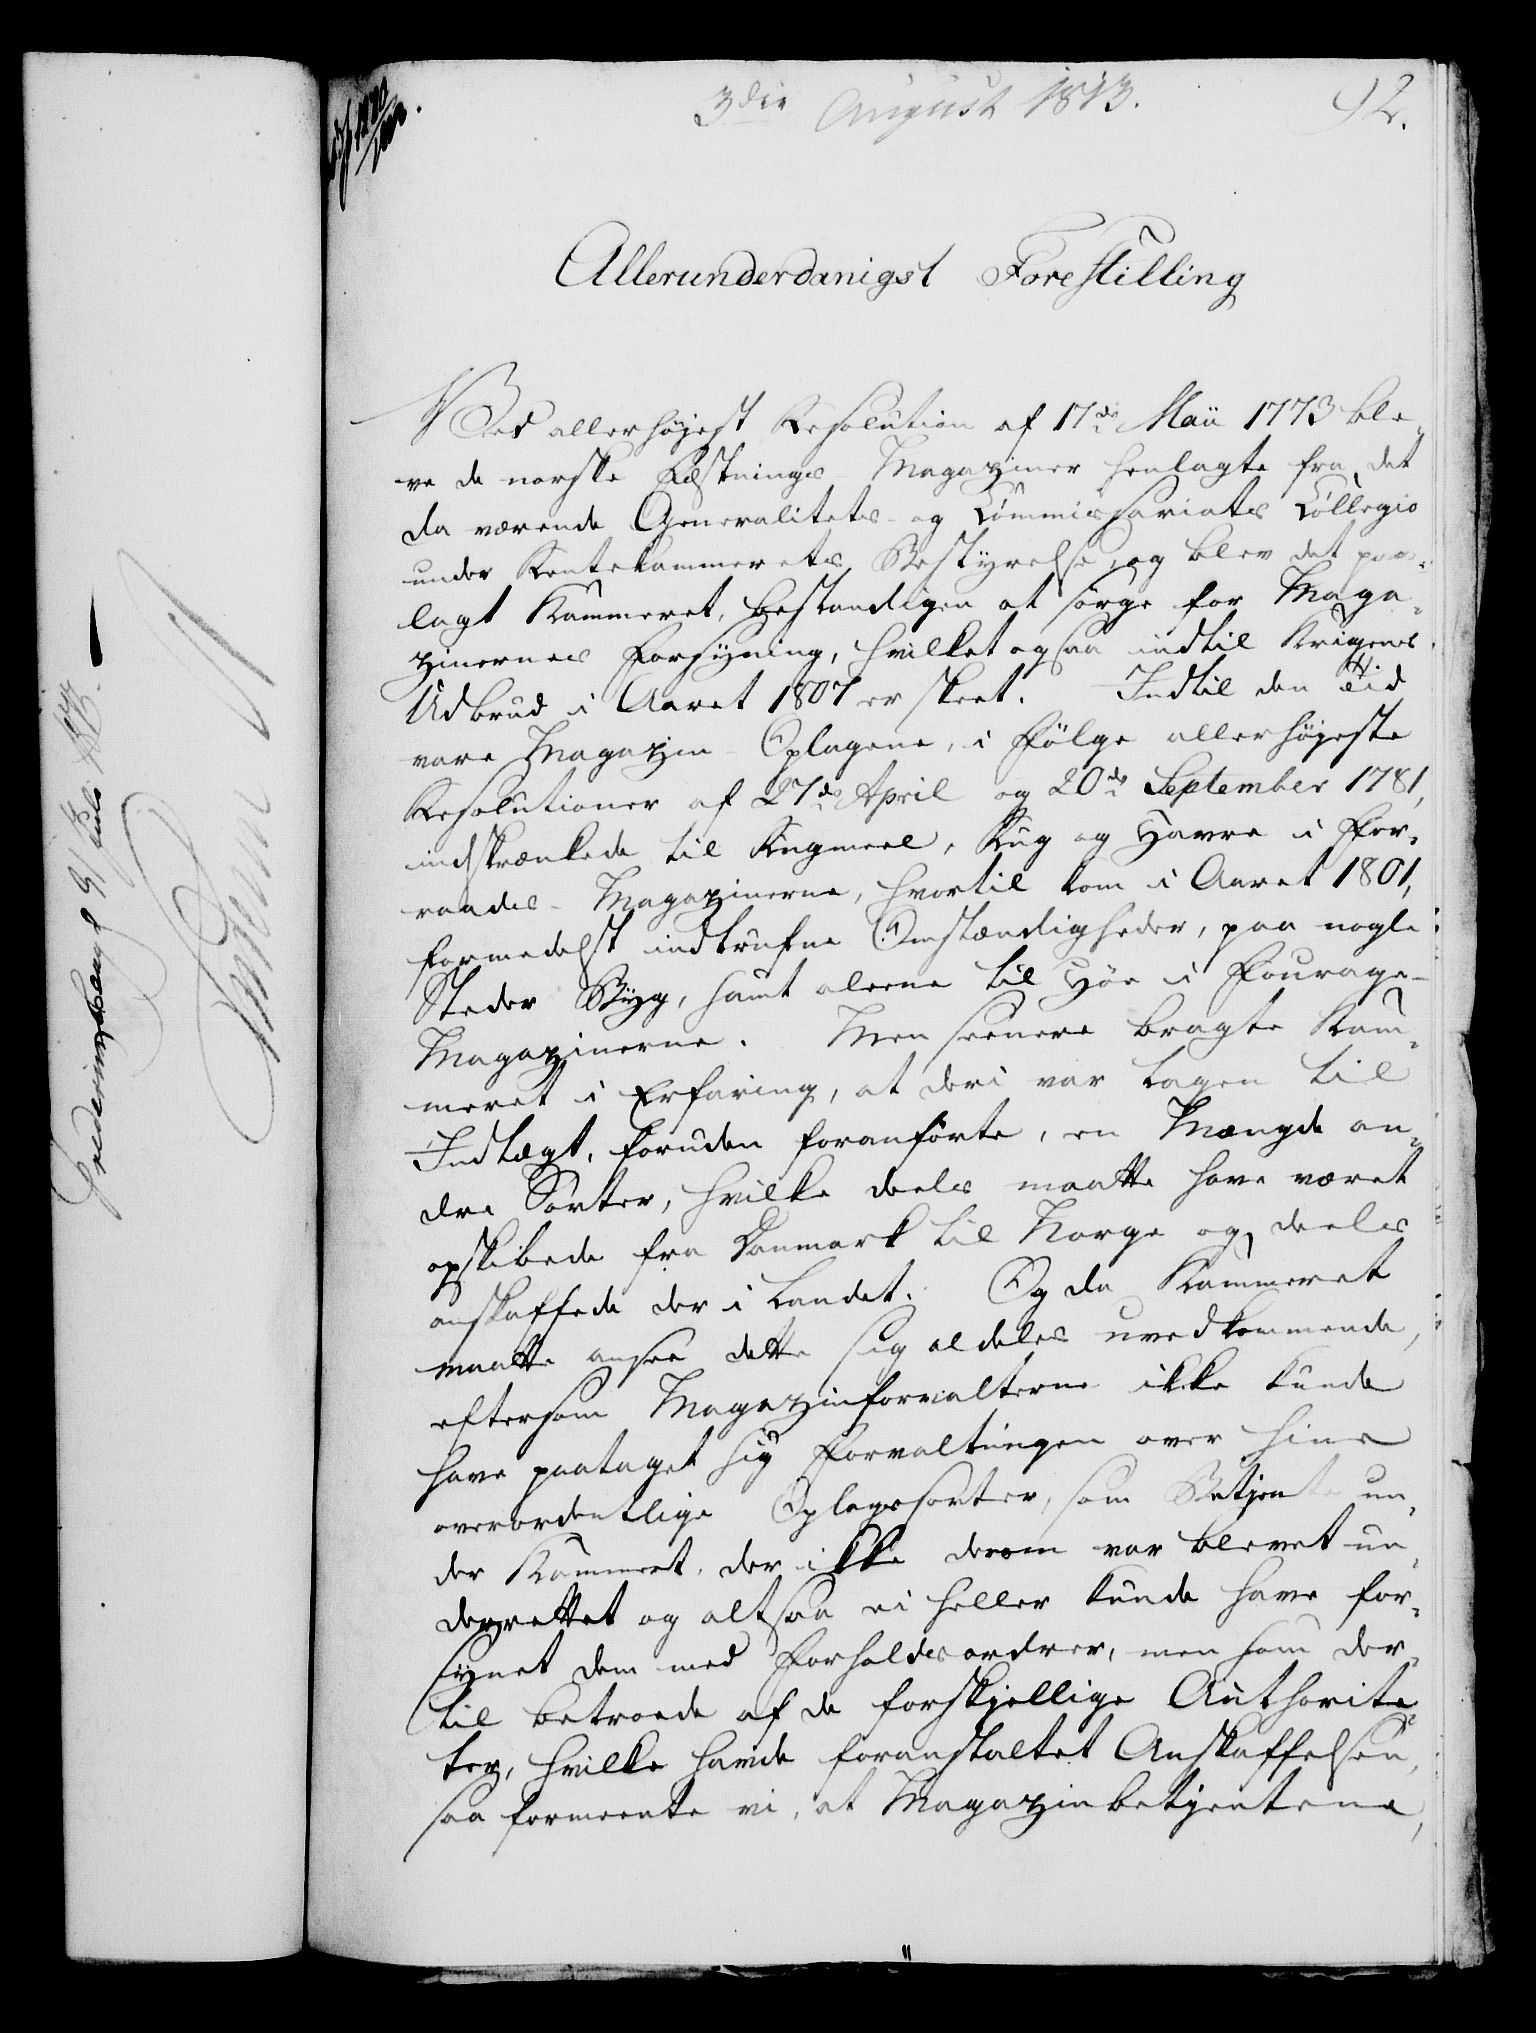 3die August 1813.
92.
Allerunderdanigst Forestilling
Ved allerhøjest Resolution af 17de Maii 1773 ble-
ve de norske Fæstnings Magaziner henlagte fra det
da værende Generalitets- og Commissariats Collegio
under Rentekammerets Bestyrelse, og blev det paa-
lagt Kammeret, bestandigen at sørge for Maga-
zinernes Forsyning, hvilket ogsaa indtil Krigens
Udbrud i Aaret 1807 er skeet. Indtil den Tid
vare Magazin-Oplagene, i Følge allerhøjeste
Resolutioner af 27de April og 20de September 1781,
indskrænkede til Rugmeel, Rug og Havre i For-
raads-Magazinerne, hvortil kom i Aaret 1801,
formedelst indtrufne Omstændigheder, paa nogle
Steder Byg, samt aleene til Høe i Fourage-
Magazinerne. Men seenere bragte Kam-
meret i Erfaring, at deri var tagen til
Indtægt, foruden foranførte, en Mængde an-
dre Sorter, hvilke deels maatte have været
opskibede fra Danmark til Norge og deels
anskaffede der i Landet. Og da Kammeret
maatte ansee dette sig aldeles uvedkommende,
eftersom Magazinforvalterne ikke kunde
have paataget sig Forvaltningen over hine
overordentlige Oplagssorter, som Betjente un-
der Kammeret, der ikke derom var blevet un-
derrettet og altsaa ei heller kunde have for-
synet dem med Forholdsordrer, men som der-
til betroede af de forskjellige Authorite-
ter, hvilke havde foranstaltet Anskaffelsen,
saa formeente vi, at Magazinbetjentene,